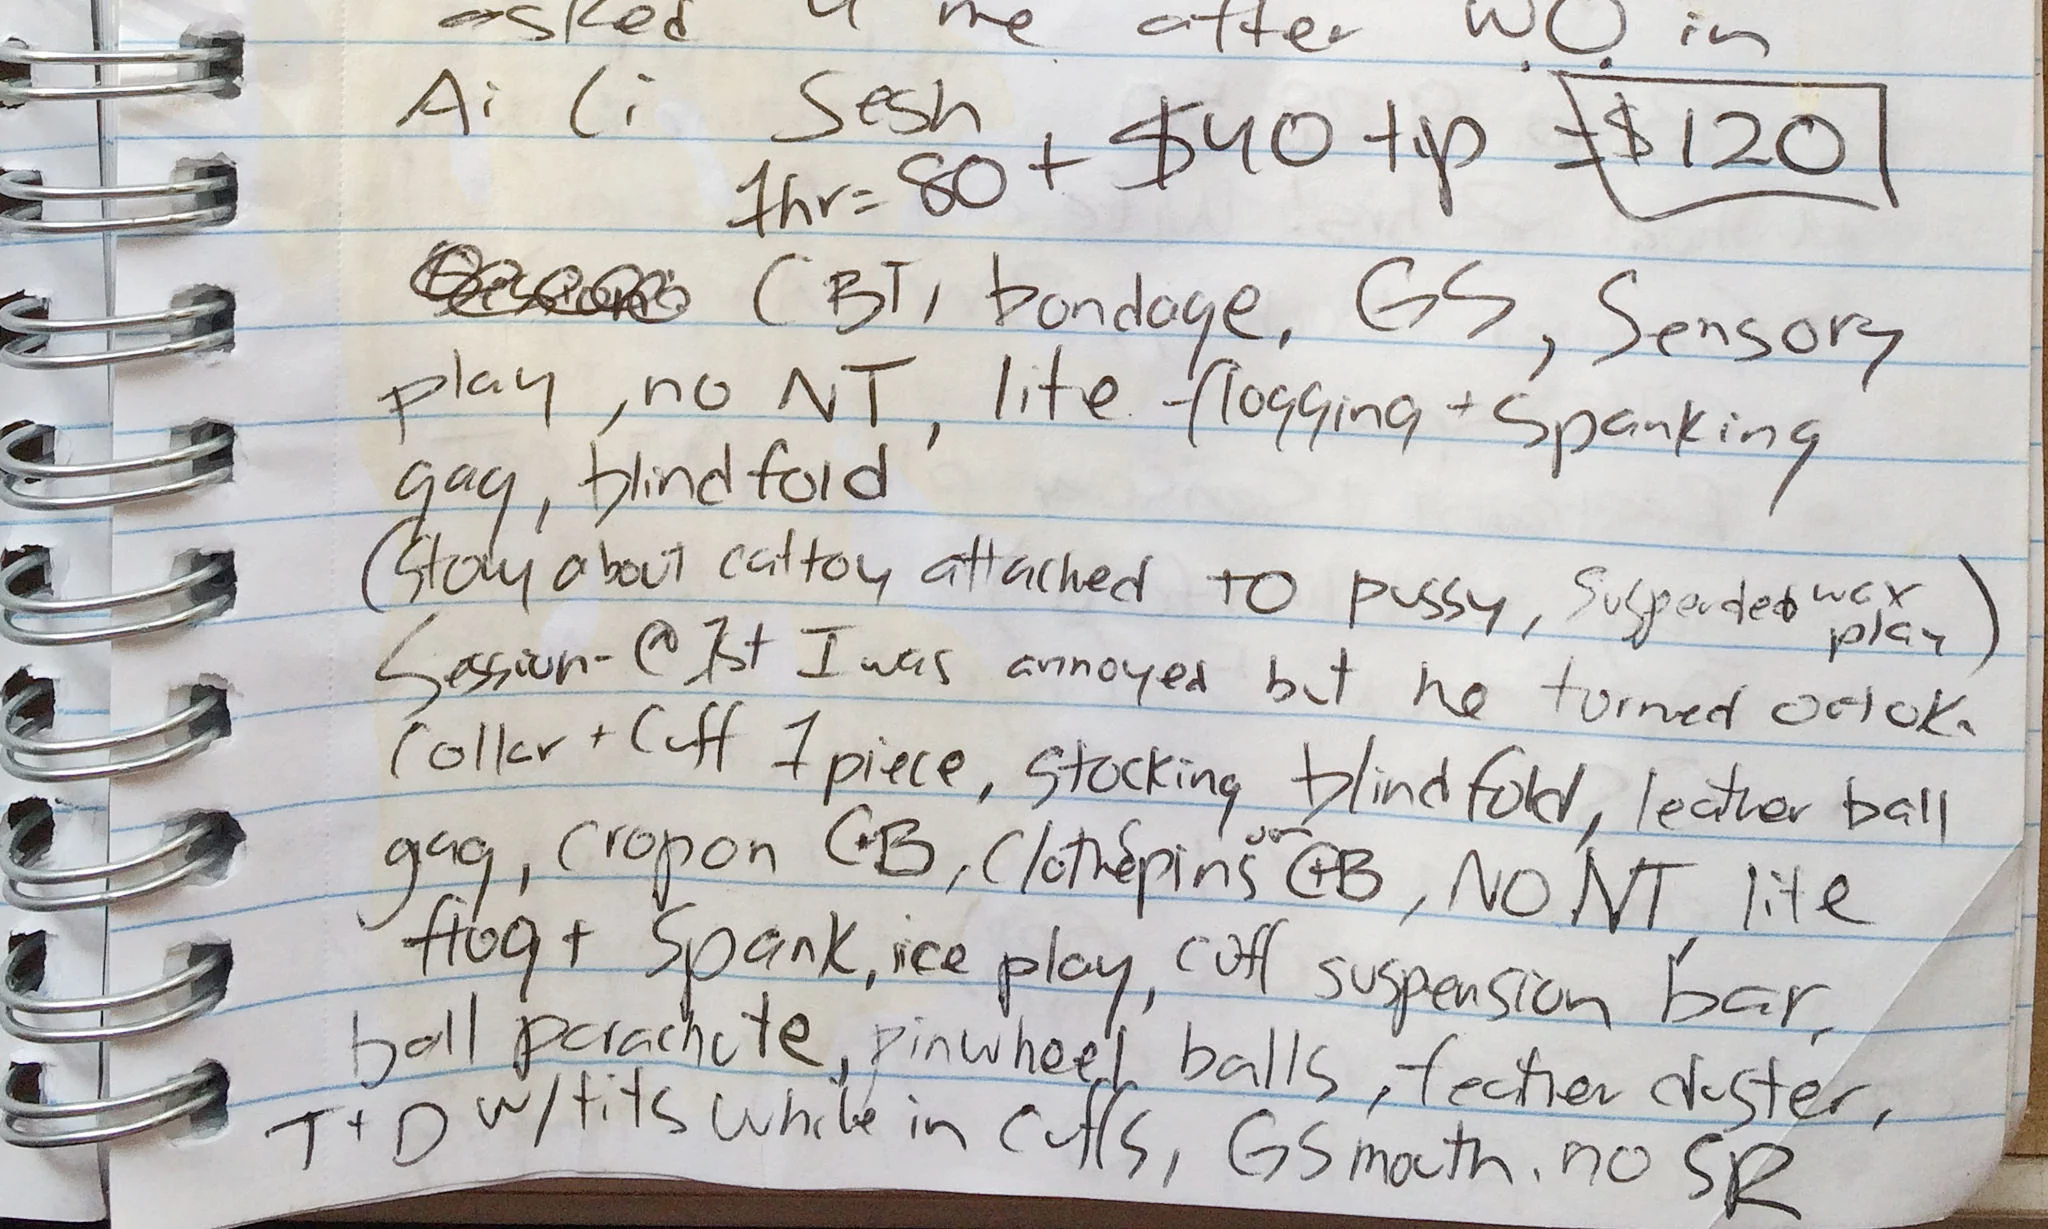 asked 4 me after WO in
Ai Ci Sesh
1hr= 80 + $40 tip = $120
CBT, bondage, GS, Sensory
play, no NT, lite flogging + Spanking
gag, blindfold
(Story about cat toy attached to pussy, suspended wax play)
Session- @ 1st I was annoyed but he turned out ok.
Collar + Cuff 1 piece, stocking blindfold, leather ball
gag, crop on C+B, clothespins on C+B, NO NT, lite
flog + Spank, ice play, cuff suspension bar,
ball parachute, pinwheel balls, feather duster,
T+D w/tits while in cuffs, GS mouth. no SR